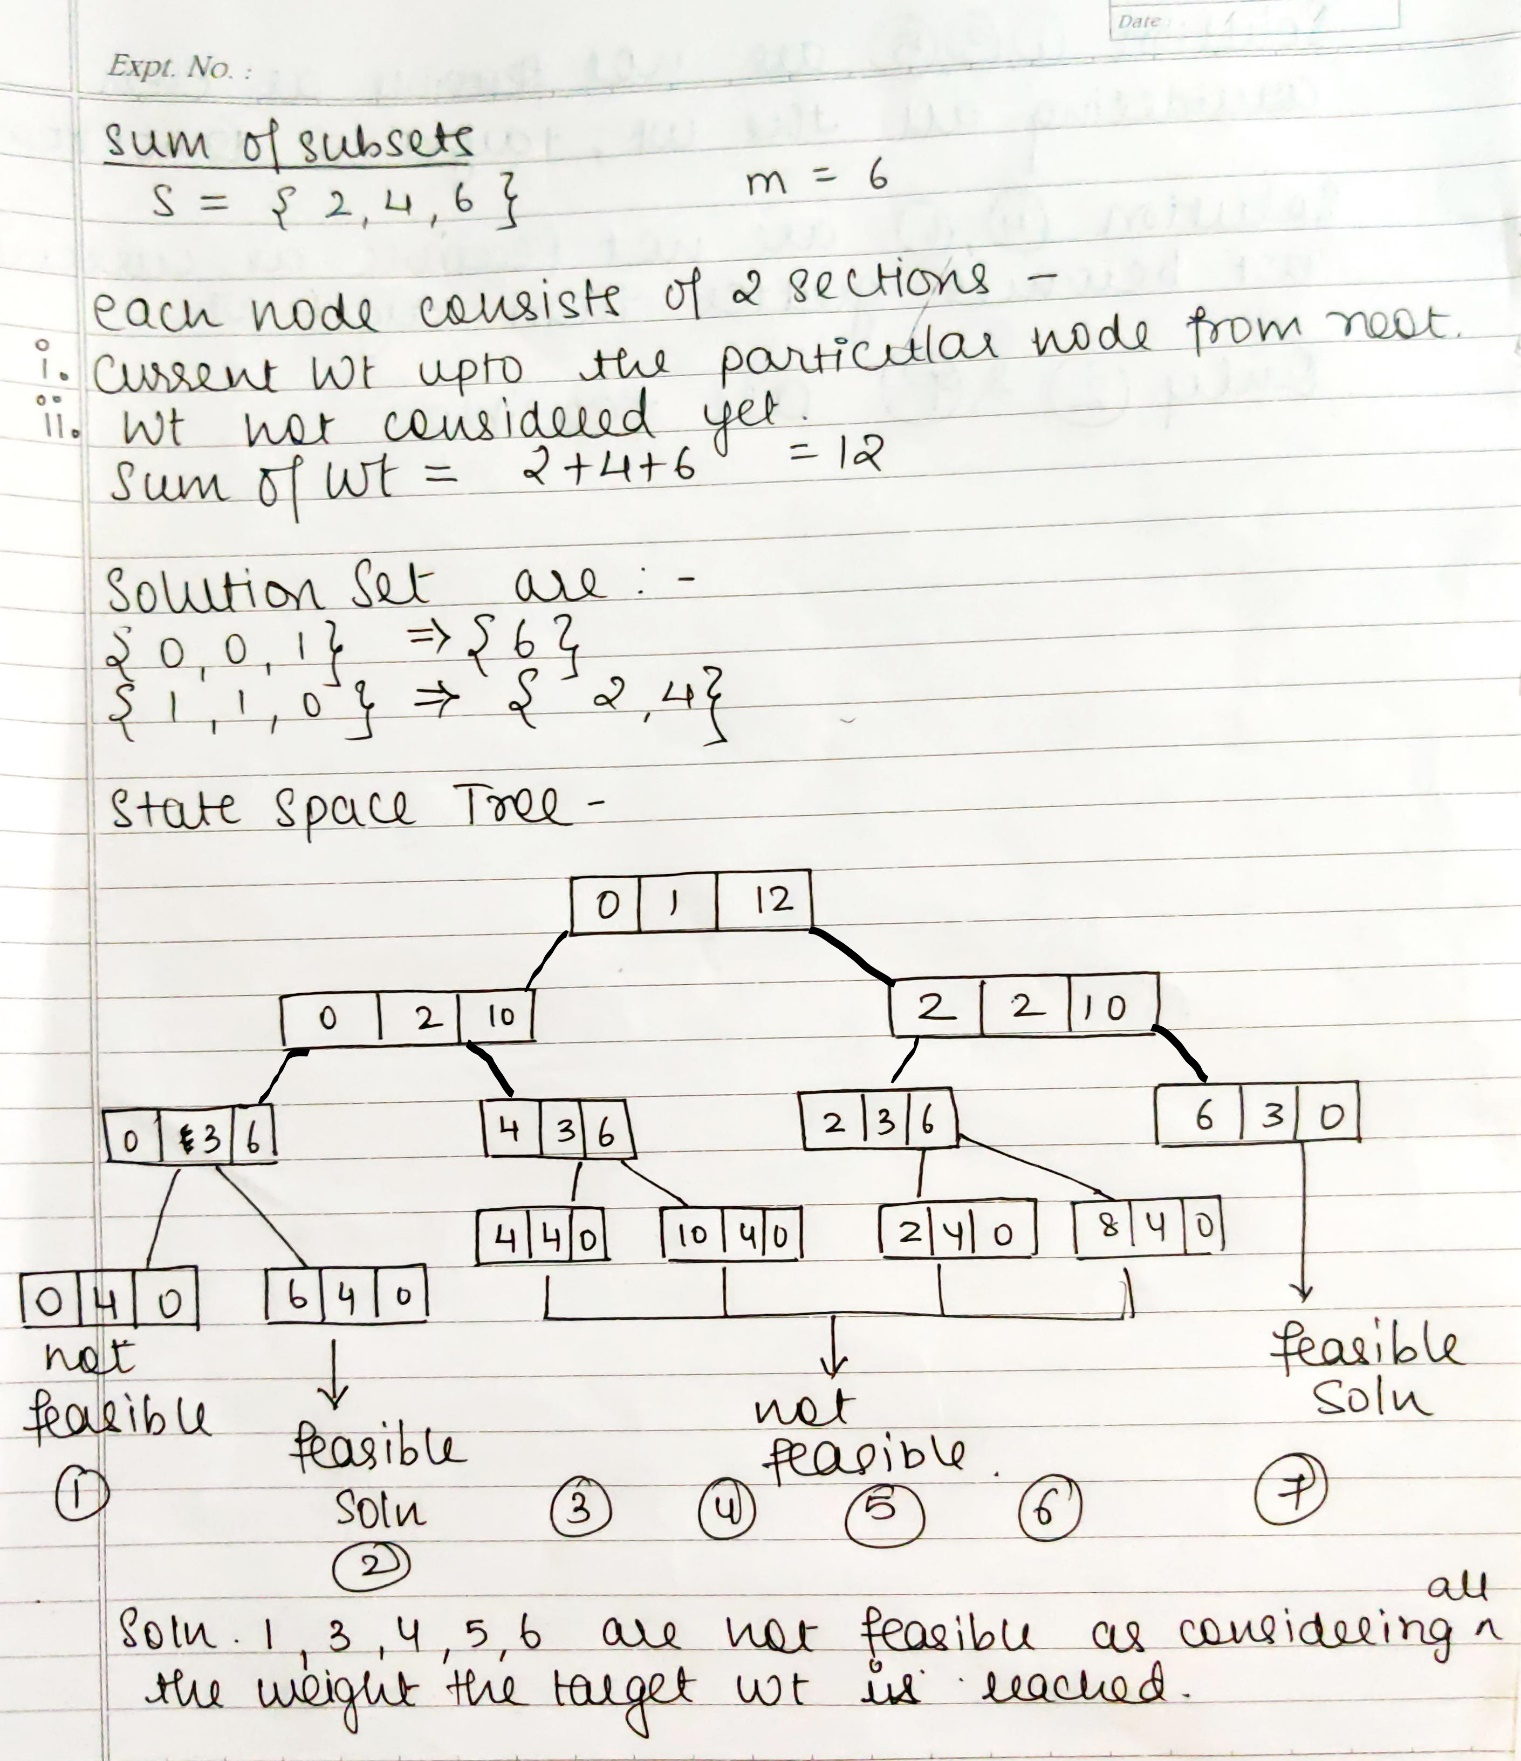 Date :
Expt. No. :
Sum of subsets
S = { 2, 4, 6 } m = 6
each node consists of 2 sections -
i. Current Wt upto the particular node from root.
ii. Wt not considered yet.
Sum of Wt = 2+4+6 = 12
Solution Set are : -
{ 0, 0, 1 } ⇒ { 6 }
{ 1, 1, 0 } ⇒ { 2, 4 }
State Space Tree -
0 1 12
0 2 10 2 2 10
0 3 6 4 3 6 2 3 6 6 3 0
4 4 0 10 4 0 2 4 0 8 4 0
0 4 0 6 4 0
not
feasible
①
feasible
Soln
②
not
feasible.
③ ④ ⑤ ⑥
feasible
Soln
⑦
Soln. 1, 3, 4, 5, 6 are not feasible as considering all
the weight the target wt is reached.